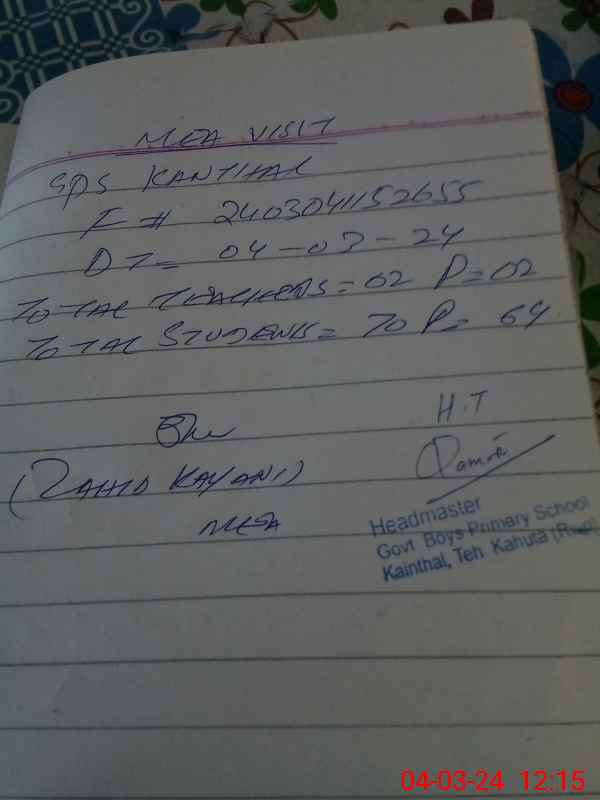 MEA VISIT
GPS KANTHAL
F # 2403041152655
DT= 04-03-24
TOTAL TEACHERS = 02 P=02
TOTAL STUDENTS = 70 P= 64
H.T
(ZAHID KAYANI)
MEA
Headmaster
Govt Boys Primary School
Kainthal, Teh Kahuta (Rwp)
04-03-24 12:15